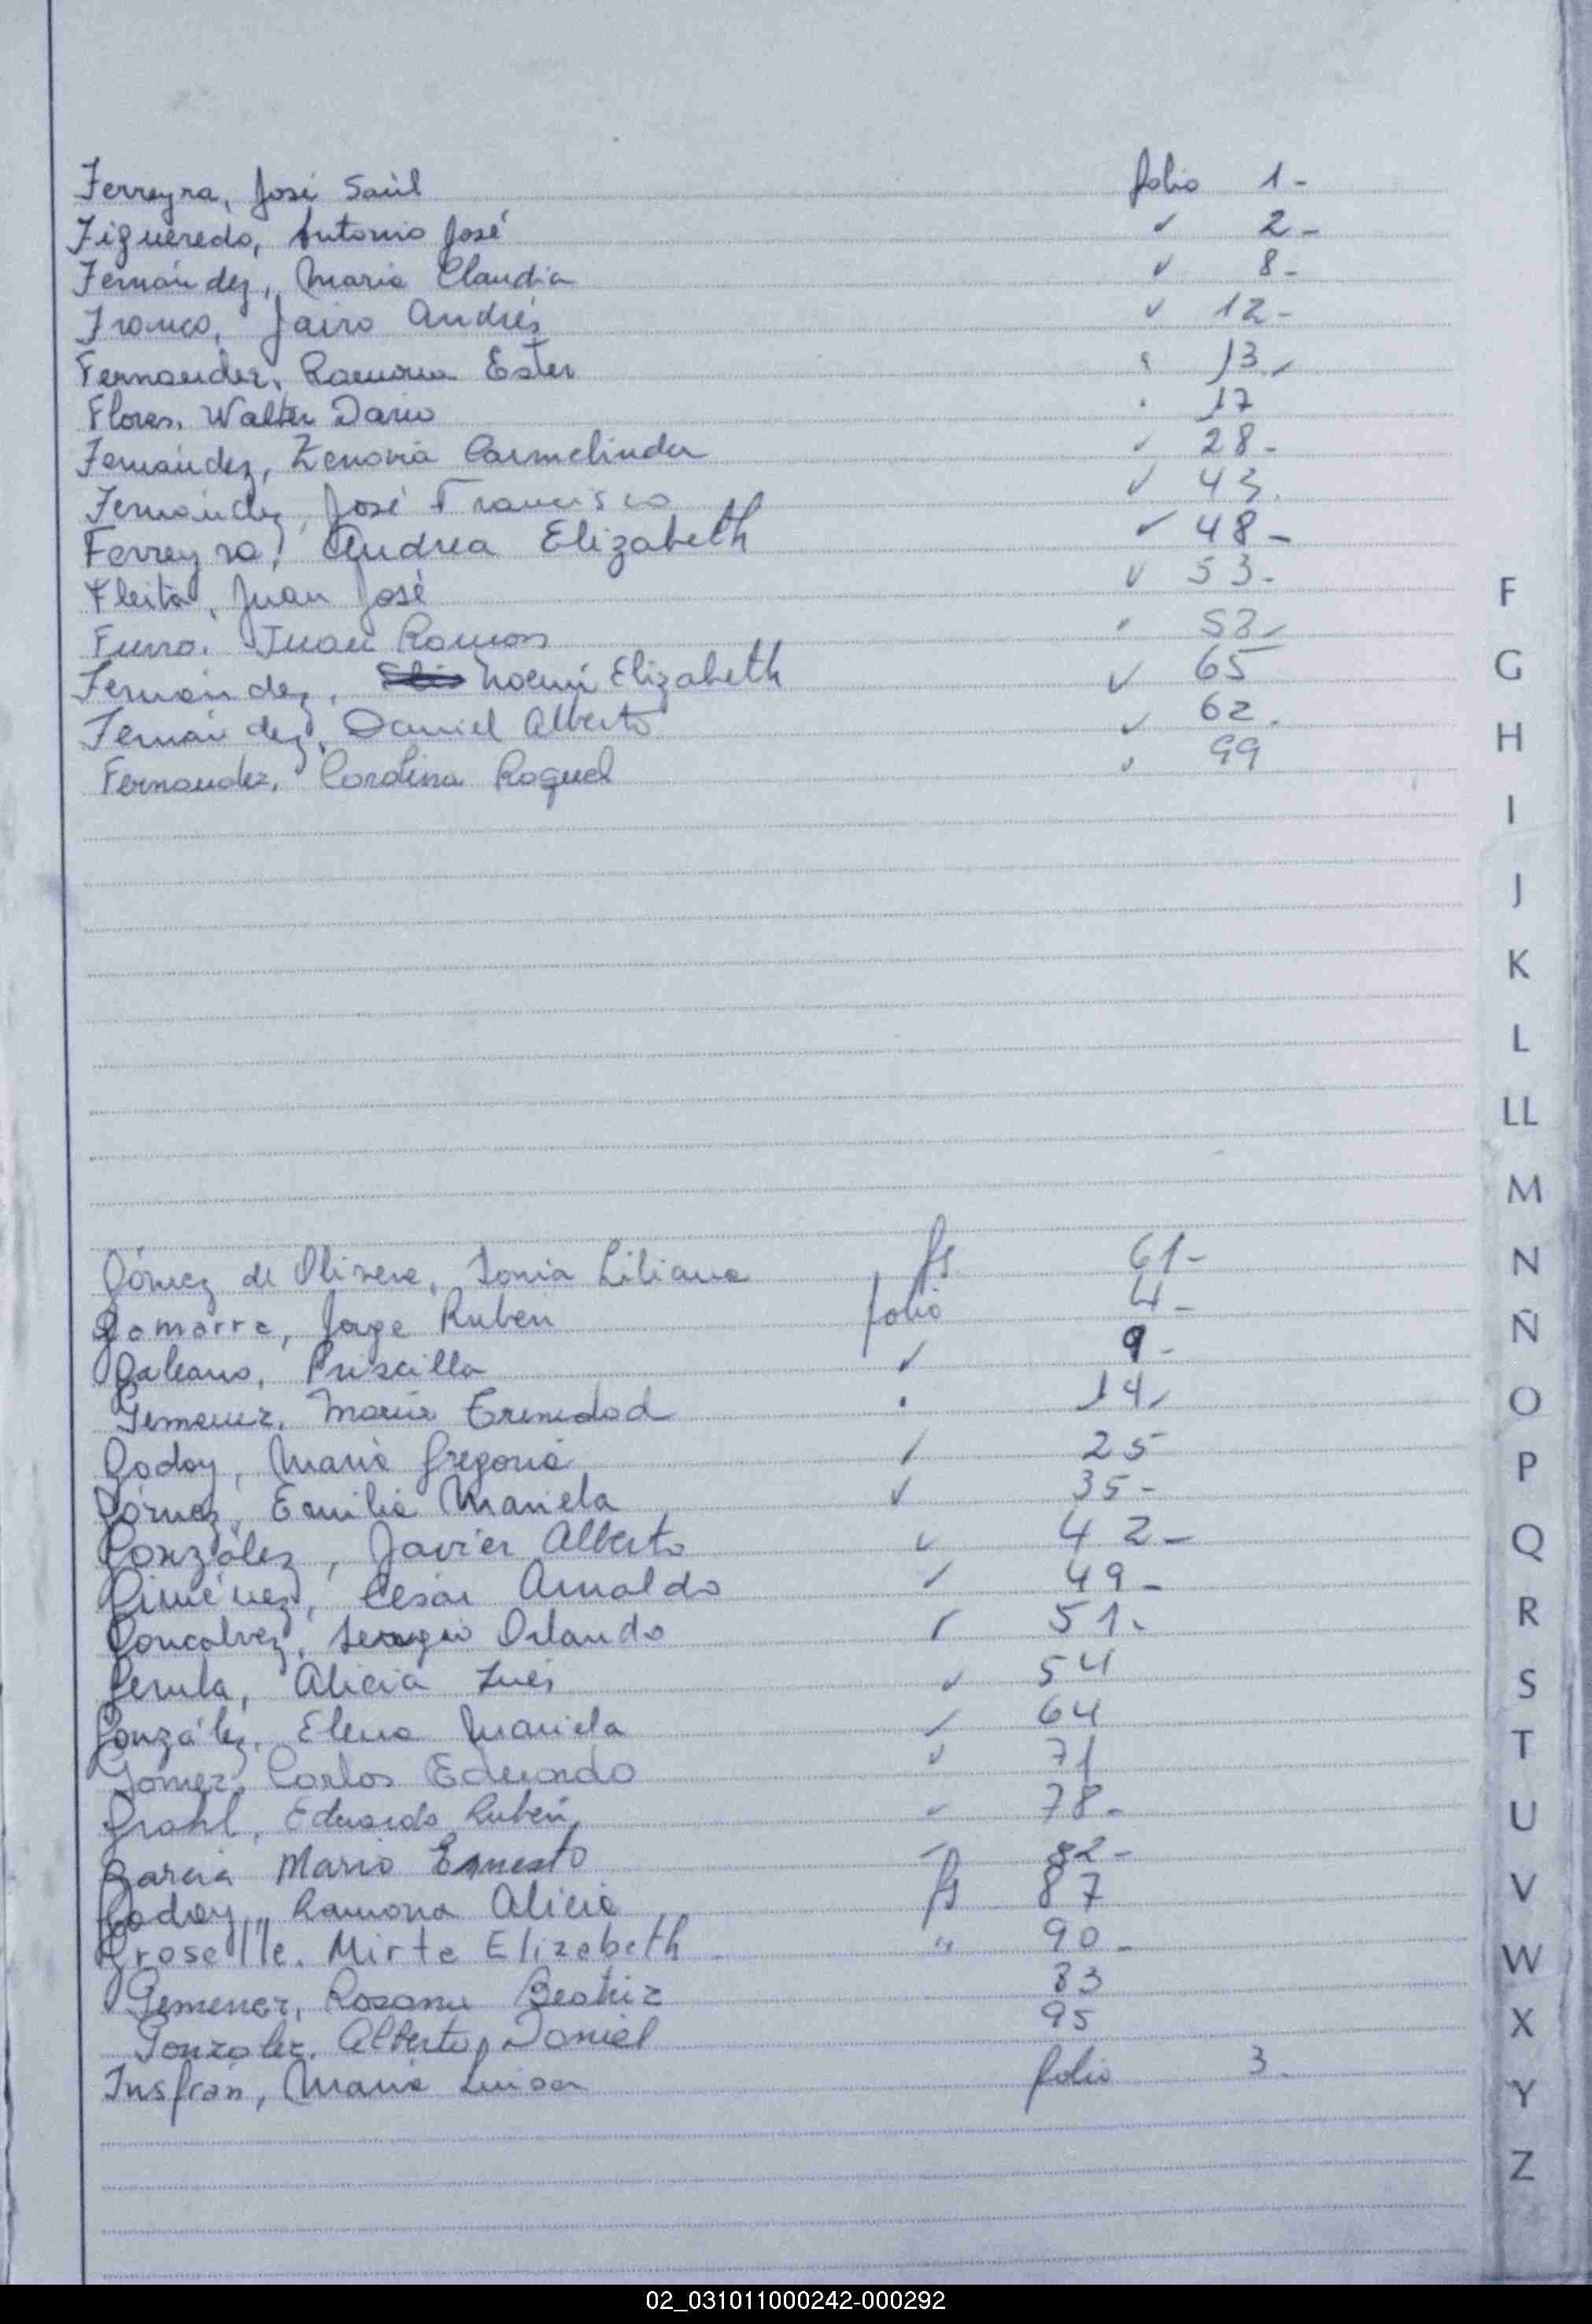 Ferreyra, José Saúl folio 1-
Figueredo, Antonio José ✓ 2-
Fernández, Maria Claudia ✓ 8-
Franco, Jairo Andrés ✓ 12-
Fernandez, Ramona Ester " 13-
Flores, Walter Dario " 17
Fernández, Zenovia Carmelinda ✓ 28-
Fernández, José Francisco ✓ 43.
Ferreyra, Andrea Elizabeth ✓ 48-
Fleita, Juan José ✓ 53-
Juan Ramon " 53-
Fernández, Noemi Elizabeth ✓ 65
Fernández, Daniel Alberto ✓ 62.
Fernandez, Carolina Raquel " 99
Gómez de Olivera, Sonia Liliana fs 61-
Gamarra, Jorge Rubén folio 4-
Galeano, Priscilla ✓ 9-
Gemenez, Maria Trenidad " 14-
Godoy, Maria Gregoria ✓ 25
Gómez, Emilia Mariela ✓ 35-
González, Javier Alberto ✓ 42-
Giménez, César Arnaldo ✓ 49-
Goncalvez, Sergio Orlando ✓ 51.
Gerula, Alicia Inés ✓ 54
González, Elena Mariela ✓ 64
Gomez, Carlos Eduardo ✓ 71
Grahl, Eduardo Rubén ✓ 78-
Garcia Mario Ernesto ✓ 82-
Godoy, Ramona Alicia fs 87
Groselle. Mirta Elizabeth " 90-
Gemenez, Rosana Beatriz 83
Gonzalez, Alberto Daniel 95
Insfrán, Maria Luisa folio 3-
F
G
H
I
J
K
L
LL
M
N
Ñ
O
P
Q
R
S
T
U
V
W
X
Y
Z
02_031011000242-000292